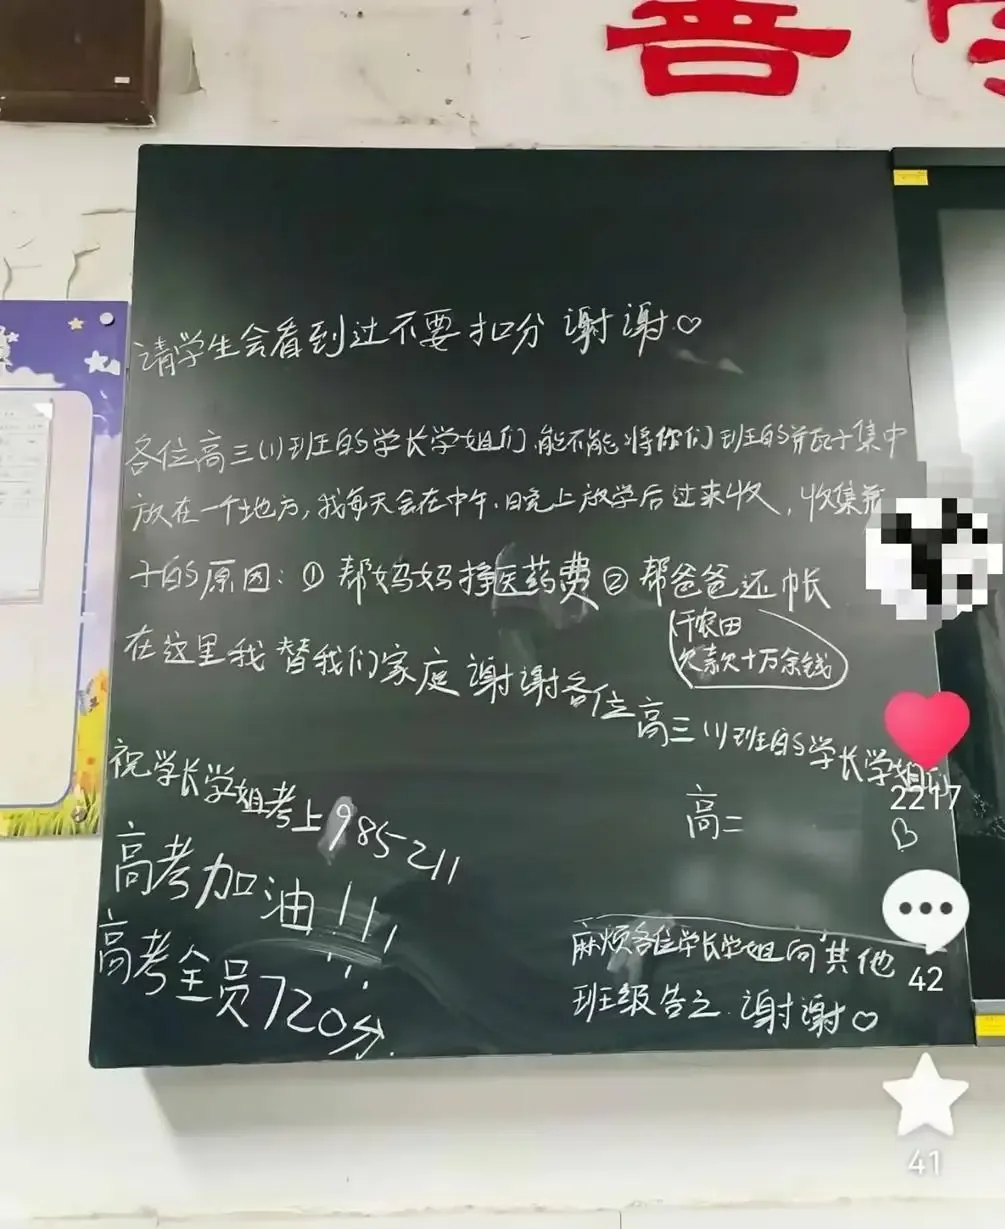 请学生会看到过不要扣分 谢谢♡
各位高三(1)班的学长学姐们,能不能将你们班的并瓦子集中
放在一个地方,我每天会在中午、晚上放学后过来收,收集
子的原因:① 帮妈妈挣医药费 ② 帮爸爸还帐
干农田
欠款欠十万余钱
在这里我替我们家庭谢谢各位高三(1)班的学长学姐们
高二
祝学长学姐考上985 211
高考加油!!!
高考全员720分.
麻烦各位学长学姐向其他
班级告之.谢谢♡
2217
42
41